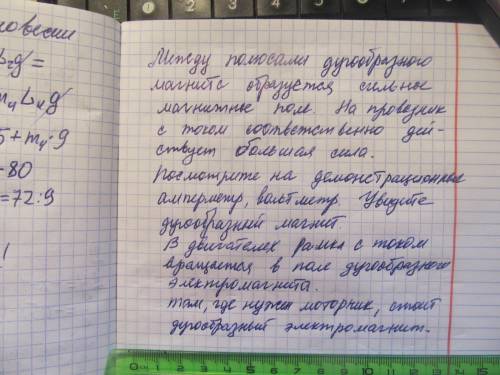 ювесии
m₄L₄g
5 + m₄·9
=80
=72:9
Между полюсами дугообразного
магнита образуется сильные
магнитные поле. На проводник
с током соответственно дей-
ствует большая сила.
Посмотрите на демонстрационные
амперметр, вольтметр. Увидите
дугообразный магнит.
В двигателех рамка с током
вращается в поле дугообразного
электромагнита.
Там, где нужен моторчик, стоит
дугообразный электромагнит.
0 см 1 2 3 4 5 6 7 8 9 10 11 12 13 14 15